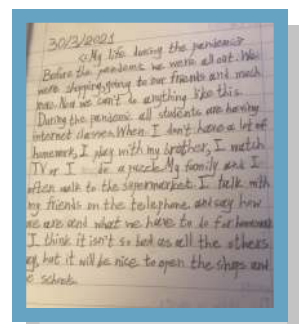 30/3/2021
"My life during the pandemic"
Before the pandemic we were all out. We
were shopping, going to our friends and much
more. Now we can't do anything like this.
During the pandemic all students are having
internet classes. When I don't have a lot of
homework, I play with my brother, I watch
TV or I do a puzzle. My family and I
often walk to the supermarket. I talk with
my friends on the telephone and say how
we are and what we have to do for homework
I think it isn't so bad as all the others
say, but it will be nice to open the shops and
schools.